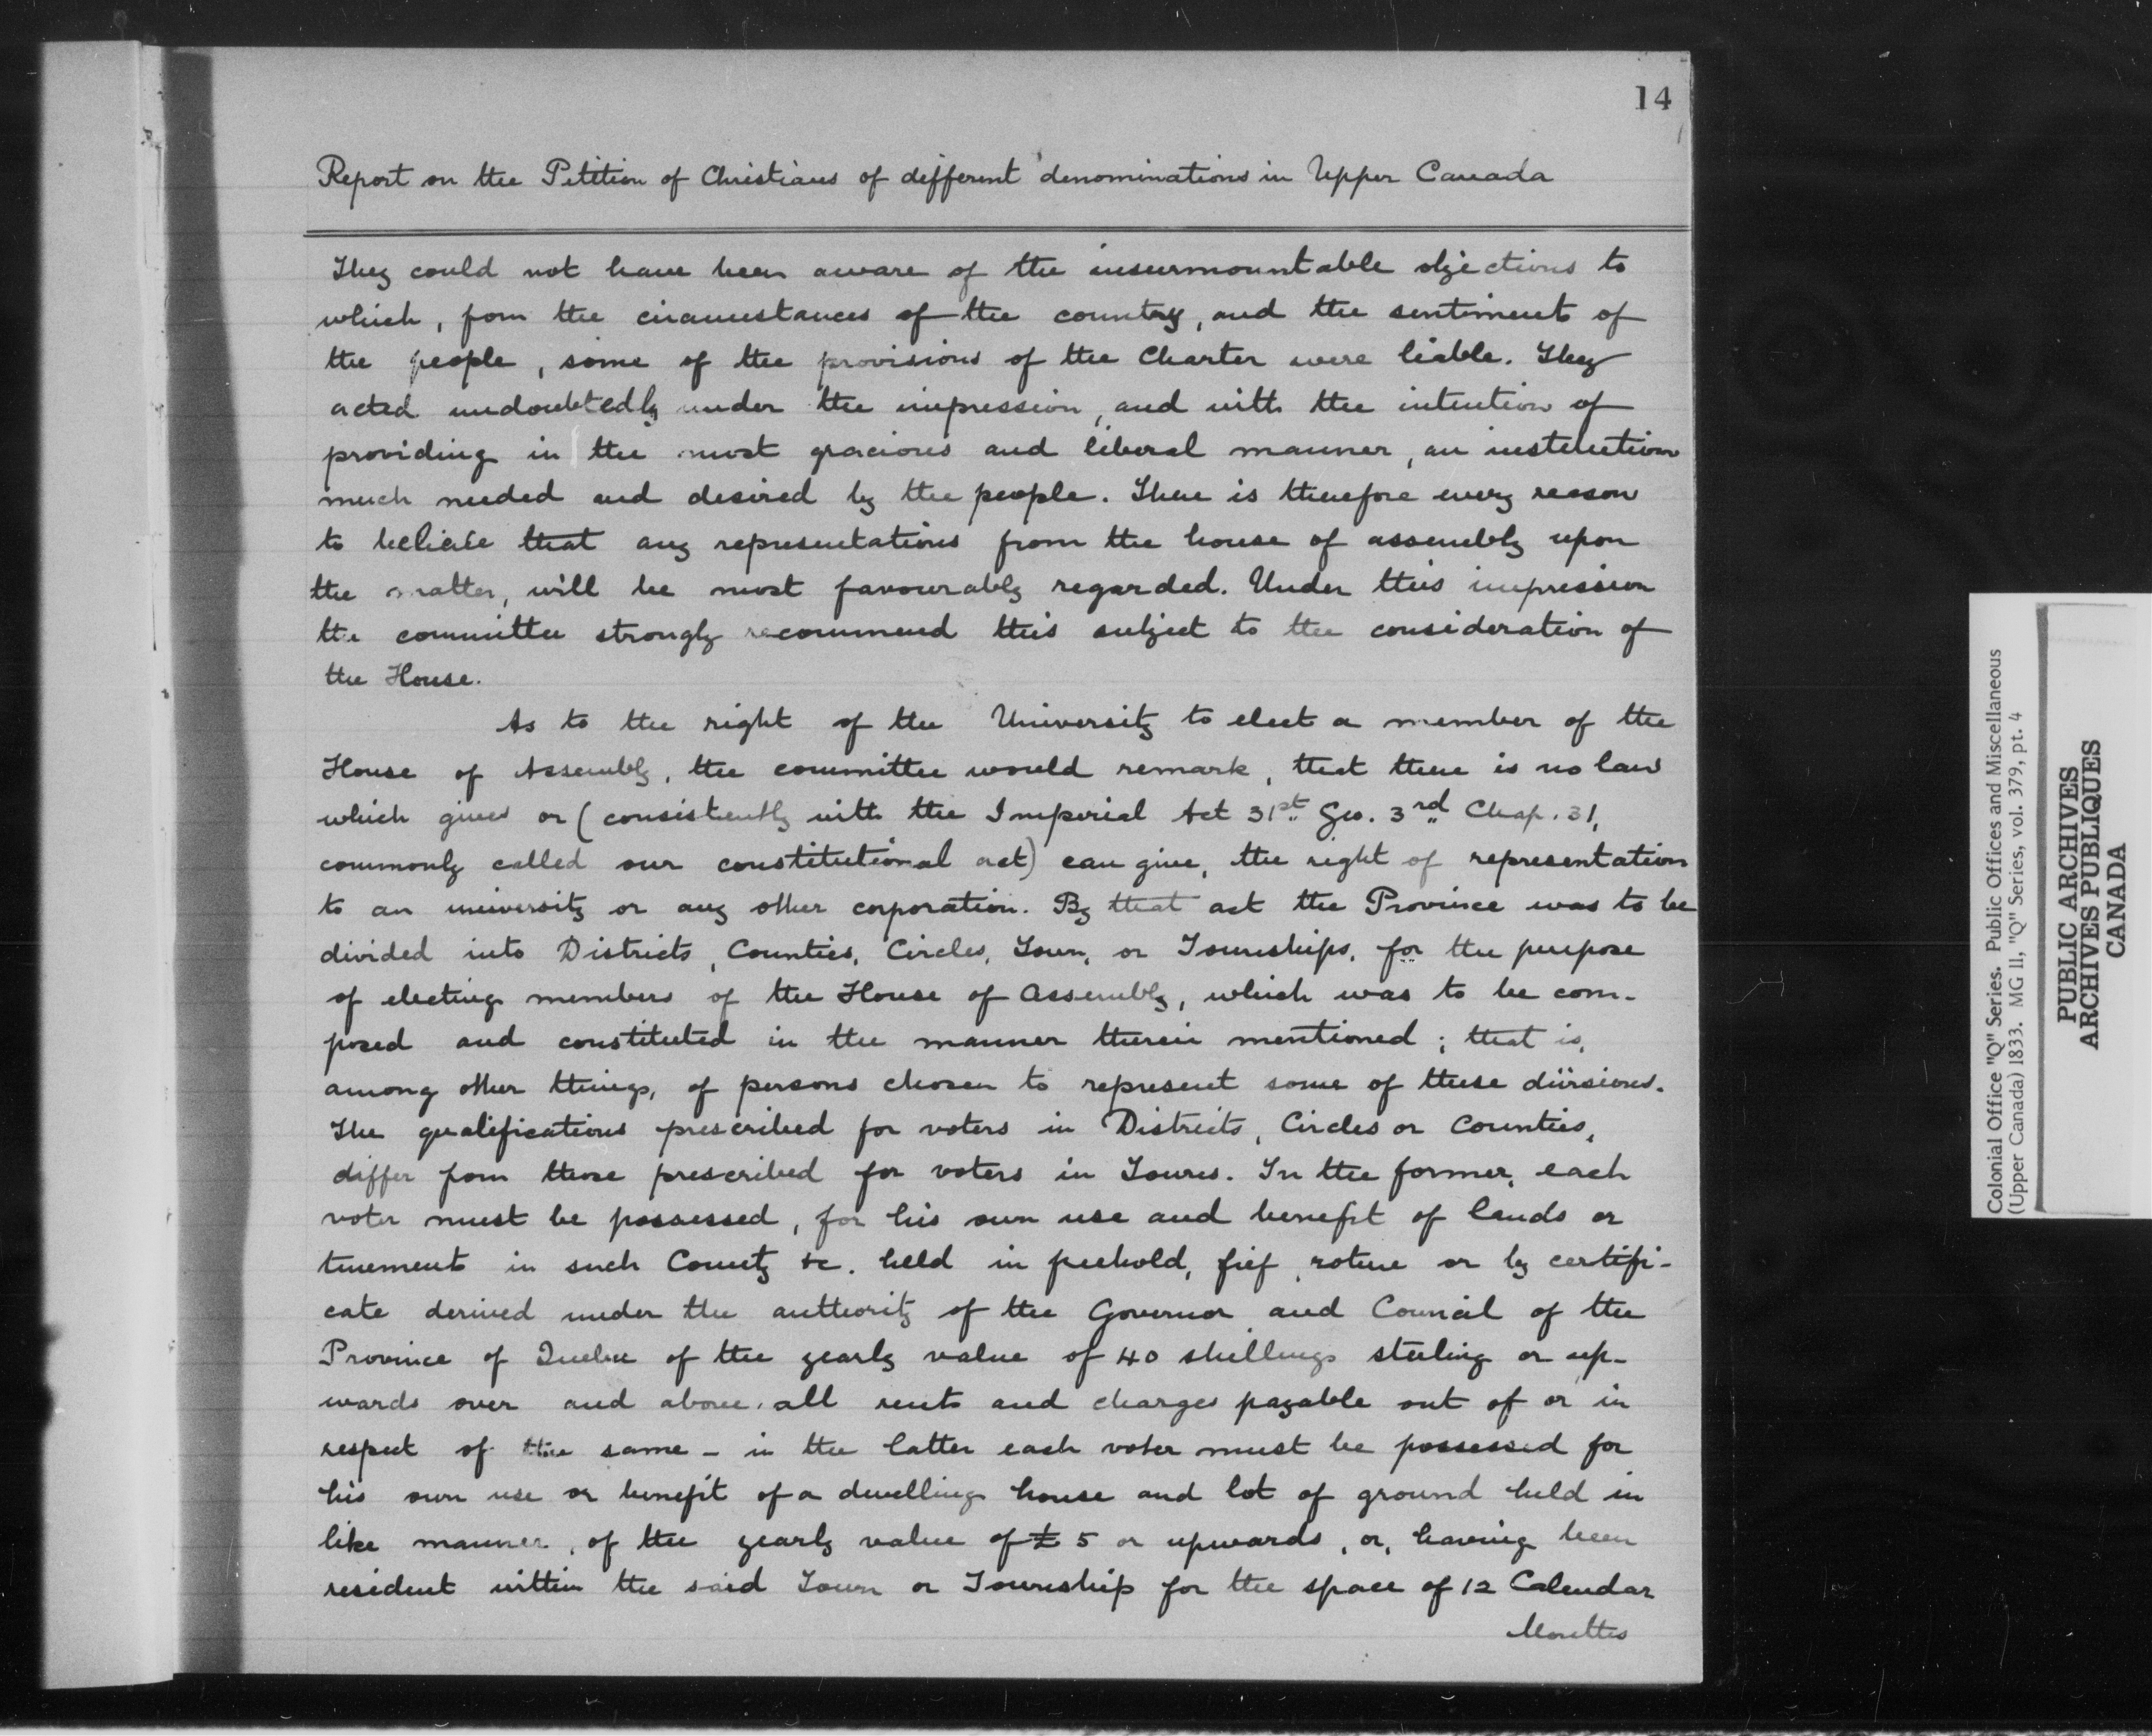 14
Report on the Petition of Christians of different denominations in Upper Canada
They could not have been aware of the insurmountable objections to
which, from the circumstances of the country, and the sentiments of
the people, some of the provisions of the Charter were liable. They
acted undoubtedly under the impression, and with the intention of
providing in the most gracious and liberal manner, an institution
much needed and desired by the people. There is therefore every reason
to believe that any representations from the house of assembly upon
the matter, will be most favourably regarded. Under this impression
the committee strongly recommend this subject to the consideration of
the House.
As to the right of the University to elect a member of the
House of Assembly, the committee would remark, that there is no law
which gives or (consistently with the Imperial Act 31st Geo. 3rd Chap. 31,
commonly called our constitutional act) can give, the right of representation
to an university or any other corporation. By that act the Province was to be
divided into Districts, Counties, Circles, Town, or Townships, for the purpose
of electing members of the House of Assembly, which was to be com-
posed and constituted in the manner therein mentioned; that is,
among other things, of persons chosen to represent some of these divisions.
The qualifications prescribed for voters in Districts, Circles or Counties,
differ from those prescribed for voters in Towns. In the former, each
voter must be possessed, for his own use and benefit of lands or
tenement in such County &c. held in freehold, fief, roture or by certifi-
cate derived under the authority of the Governor and Council of the
Province of Quebec of the yearly value of 40 shillings sterling or up-
wards over and above, all rents and charges payable out of or in
respect of the same - in the latter each voter must be possessed for
his own use or benefit of a dwelling house and lot of ground held in
like manner, of the yearly value of £ 5 or upwards, or, having been
resident within the said Town or Township for the space of 12 Calendar
Months
Colonial Office "Q" Series. Public Offices and Miscellaneous
(Upper Canada) 1833. MG 11, "Q" Series, vol. 379, pt. 4
PUBLIC ARCHIVES
ARCHIVES PUBLIQUES
CANADA